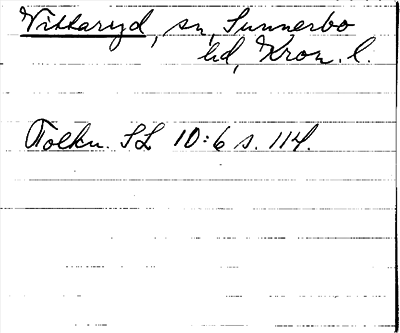 Vittaryd, sn, Sunnerbo
hd, Kron. l.
Tolkn. SL 10:6 s. 114.